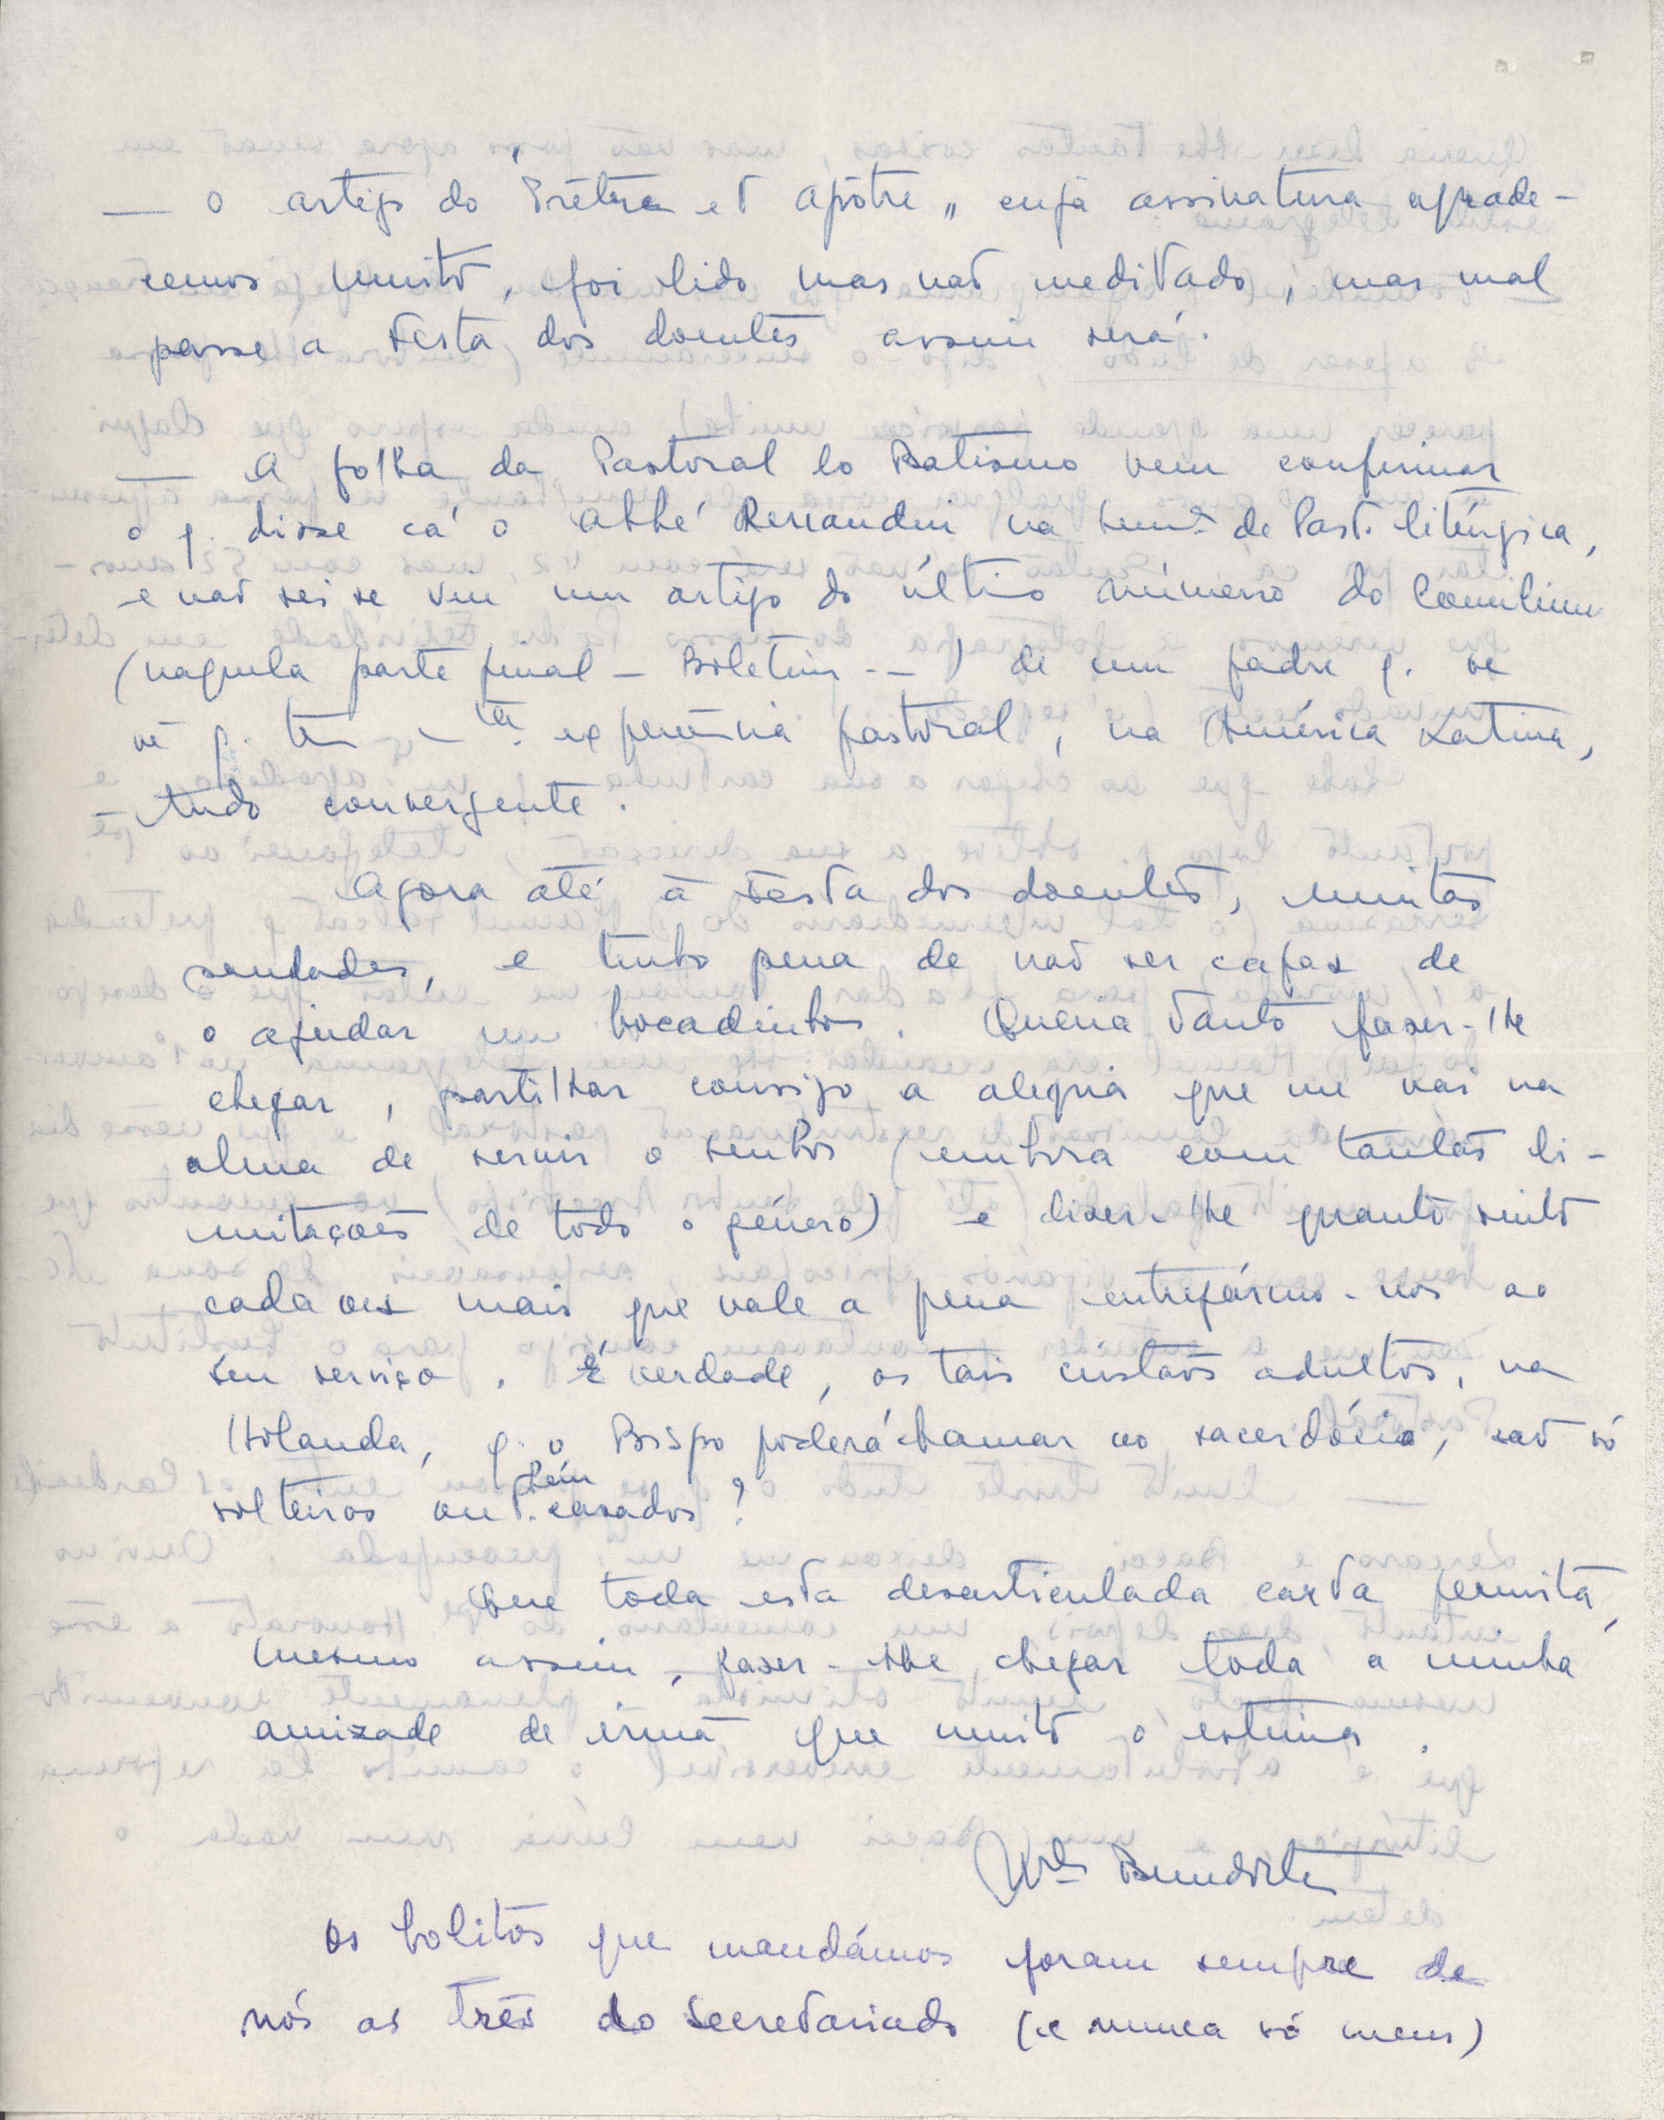 — O artigo do "Prêtre et Apôtre" cuja assinatura agrade-
cemos muito, foi lido mas não meditado; mas mal
passe a Festa dos doentes assim será.
— A folha da Pastoral do Batismo vem confirmar
o q. disse cá o Abbé na Semª de Past. litúrgica,
e não sei se viu um artigo do último número do Concilium
(naquela parte final - Boletim --) de um padre q. se
vê q. tem experiência pastoral, na América Latina,
tudo convergente.
Agora até à Festa dos doentes, muitas
saudades, e tenho pena de não ser capaz de
o ajudar um bocadinho. Queria tanto fazer-lhe
chegar, partilhar consigo a alegria que me vai na
alma de servir o Senhor (embora com tantas li-
mitações de todo o género) e dizer-lhe quanto sinto
cada vez mais que vale a pena entregármo-nos ao
seu serviço. É verdade, os tais cristãos adultos, na
Holanda, q. o Bispo poderá chamar ao sacerdócio, são só
solteiros ou tbém casados?
Que toda esta desarticulada carta permita,
mesmo assim, fazer-lhe chegar toda a minha
amizade de irmã que muito o estima.
Os bolitos que mandámos foram sempre de
nós as três do Secretariado (e nunca só meus)